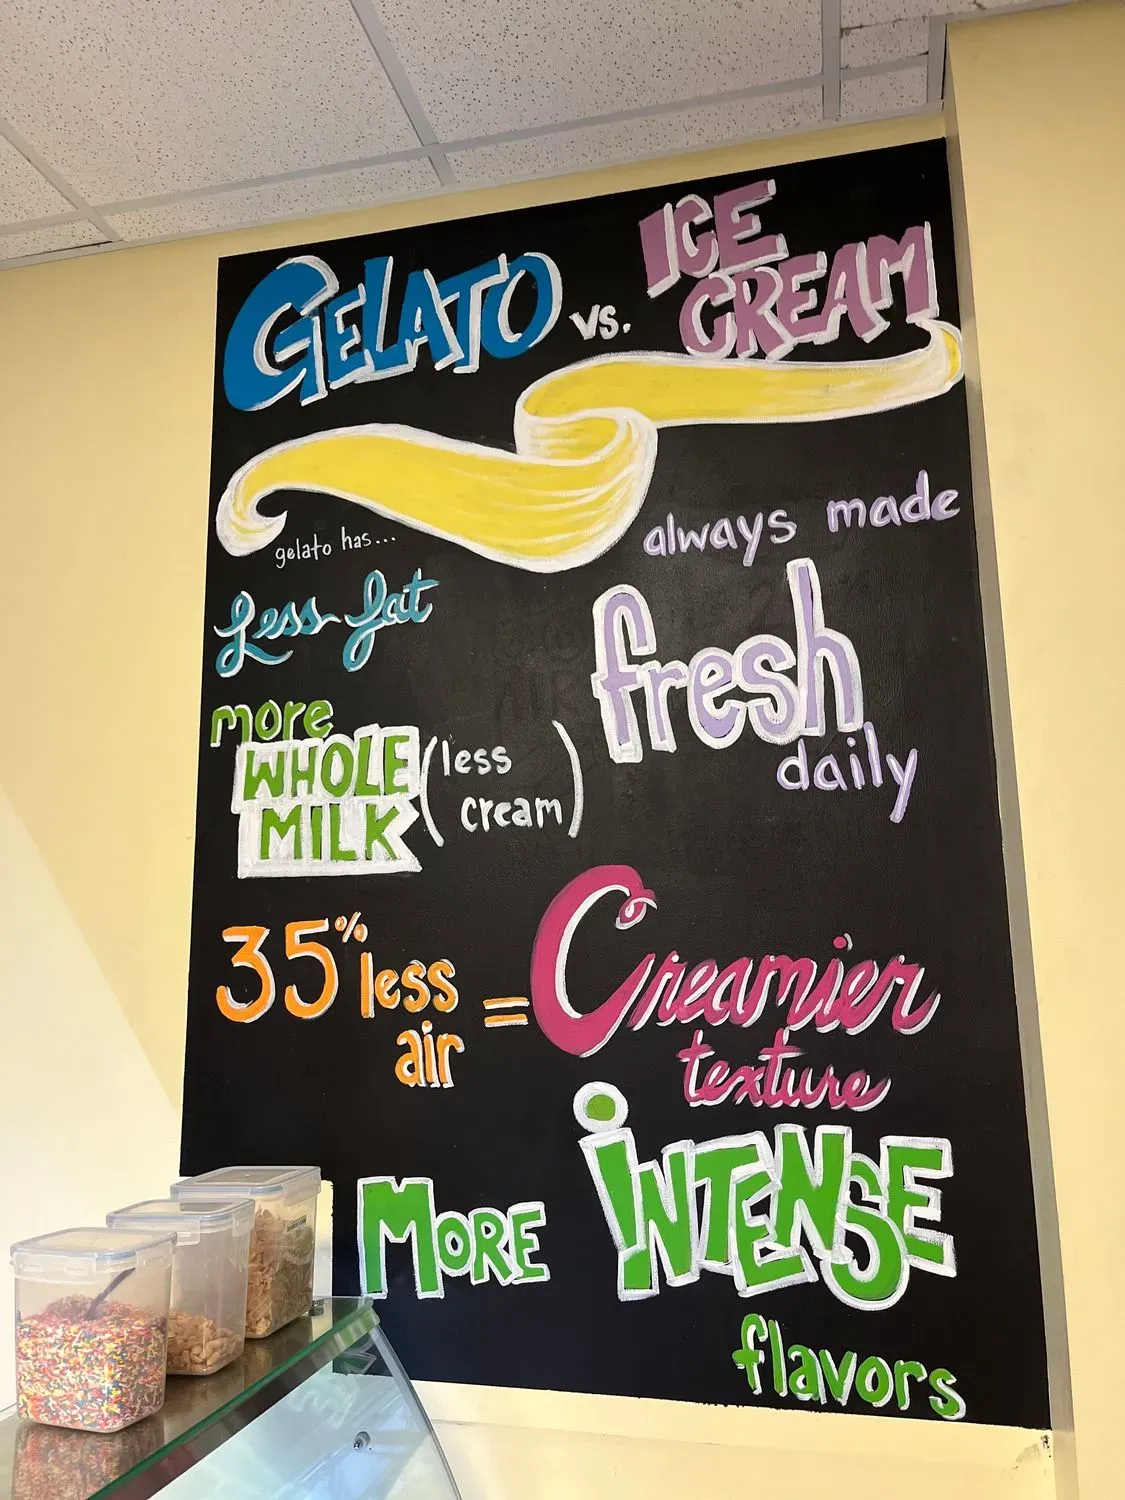 GELATO vs. ICE
CREAM
gelato has...
Less fat
always made
fresh
daily
more
WHOLE
MILK
(less
cream)
35% less
air
=
Creamier
texture
MORE iNTENSE
flavors